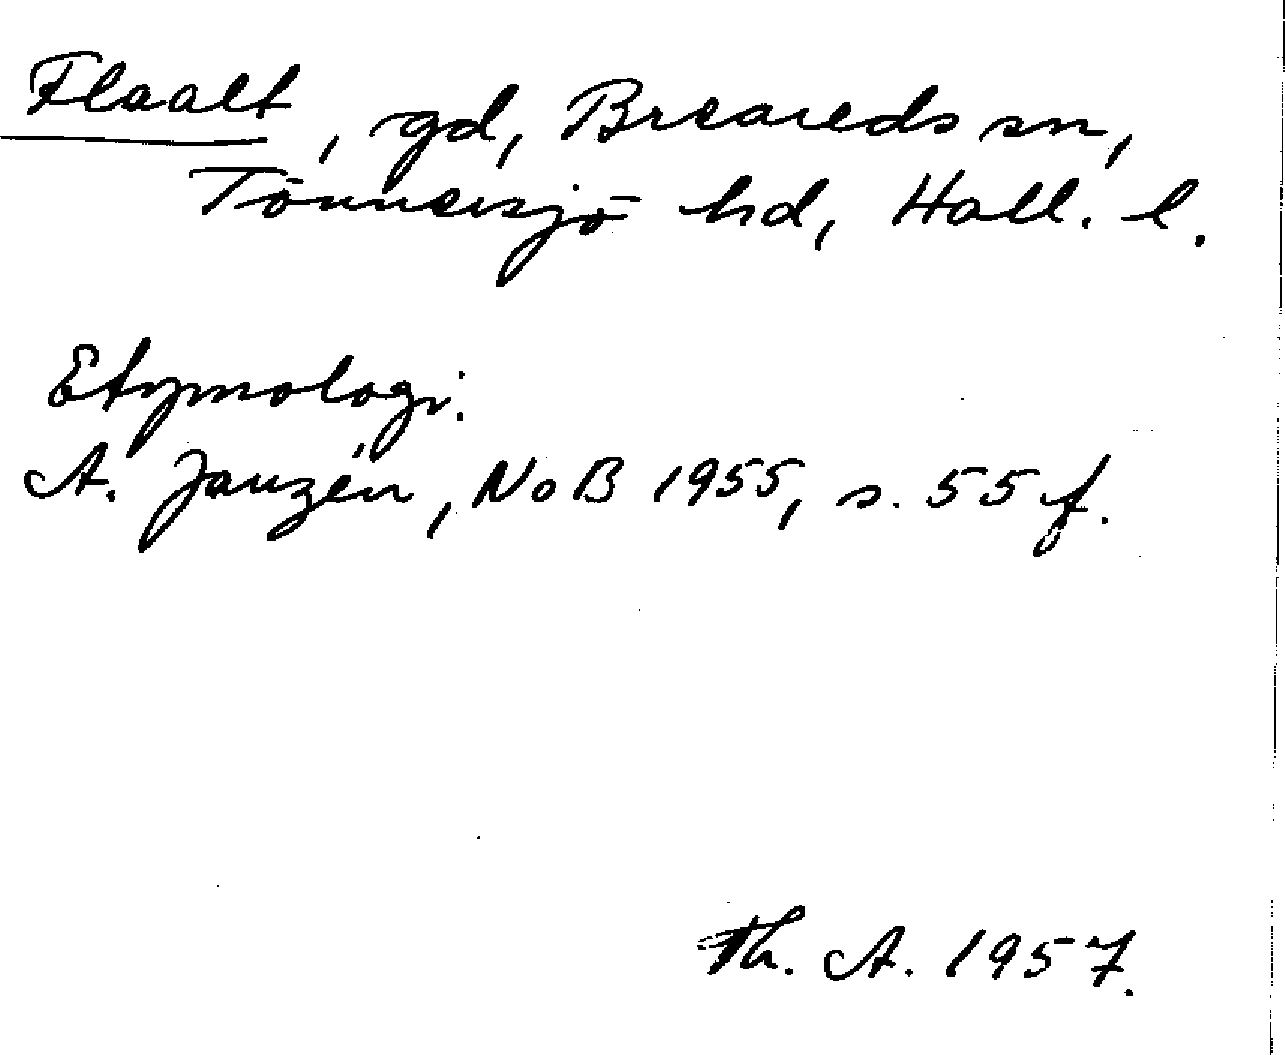 Flaalt, gd, Breareds sn,
Tönnersjö hd, Hall. l.
Etymologi:
A. Janzén, NoB 1955, s. 55 f.
Th. A. 1957.